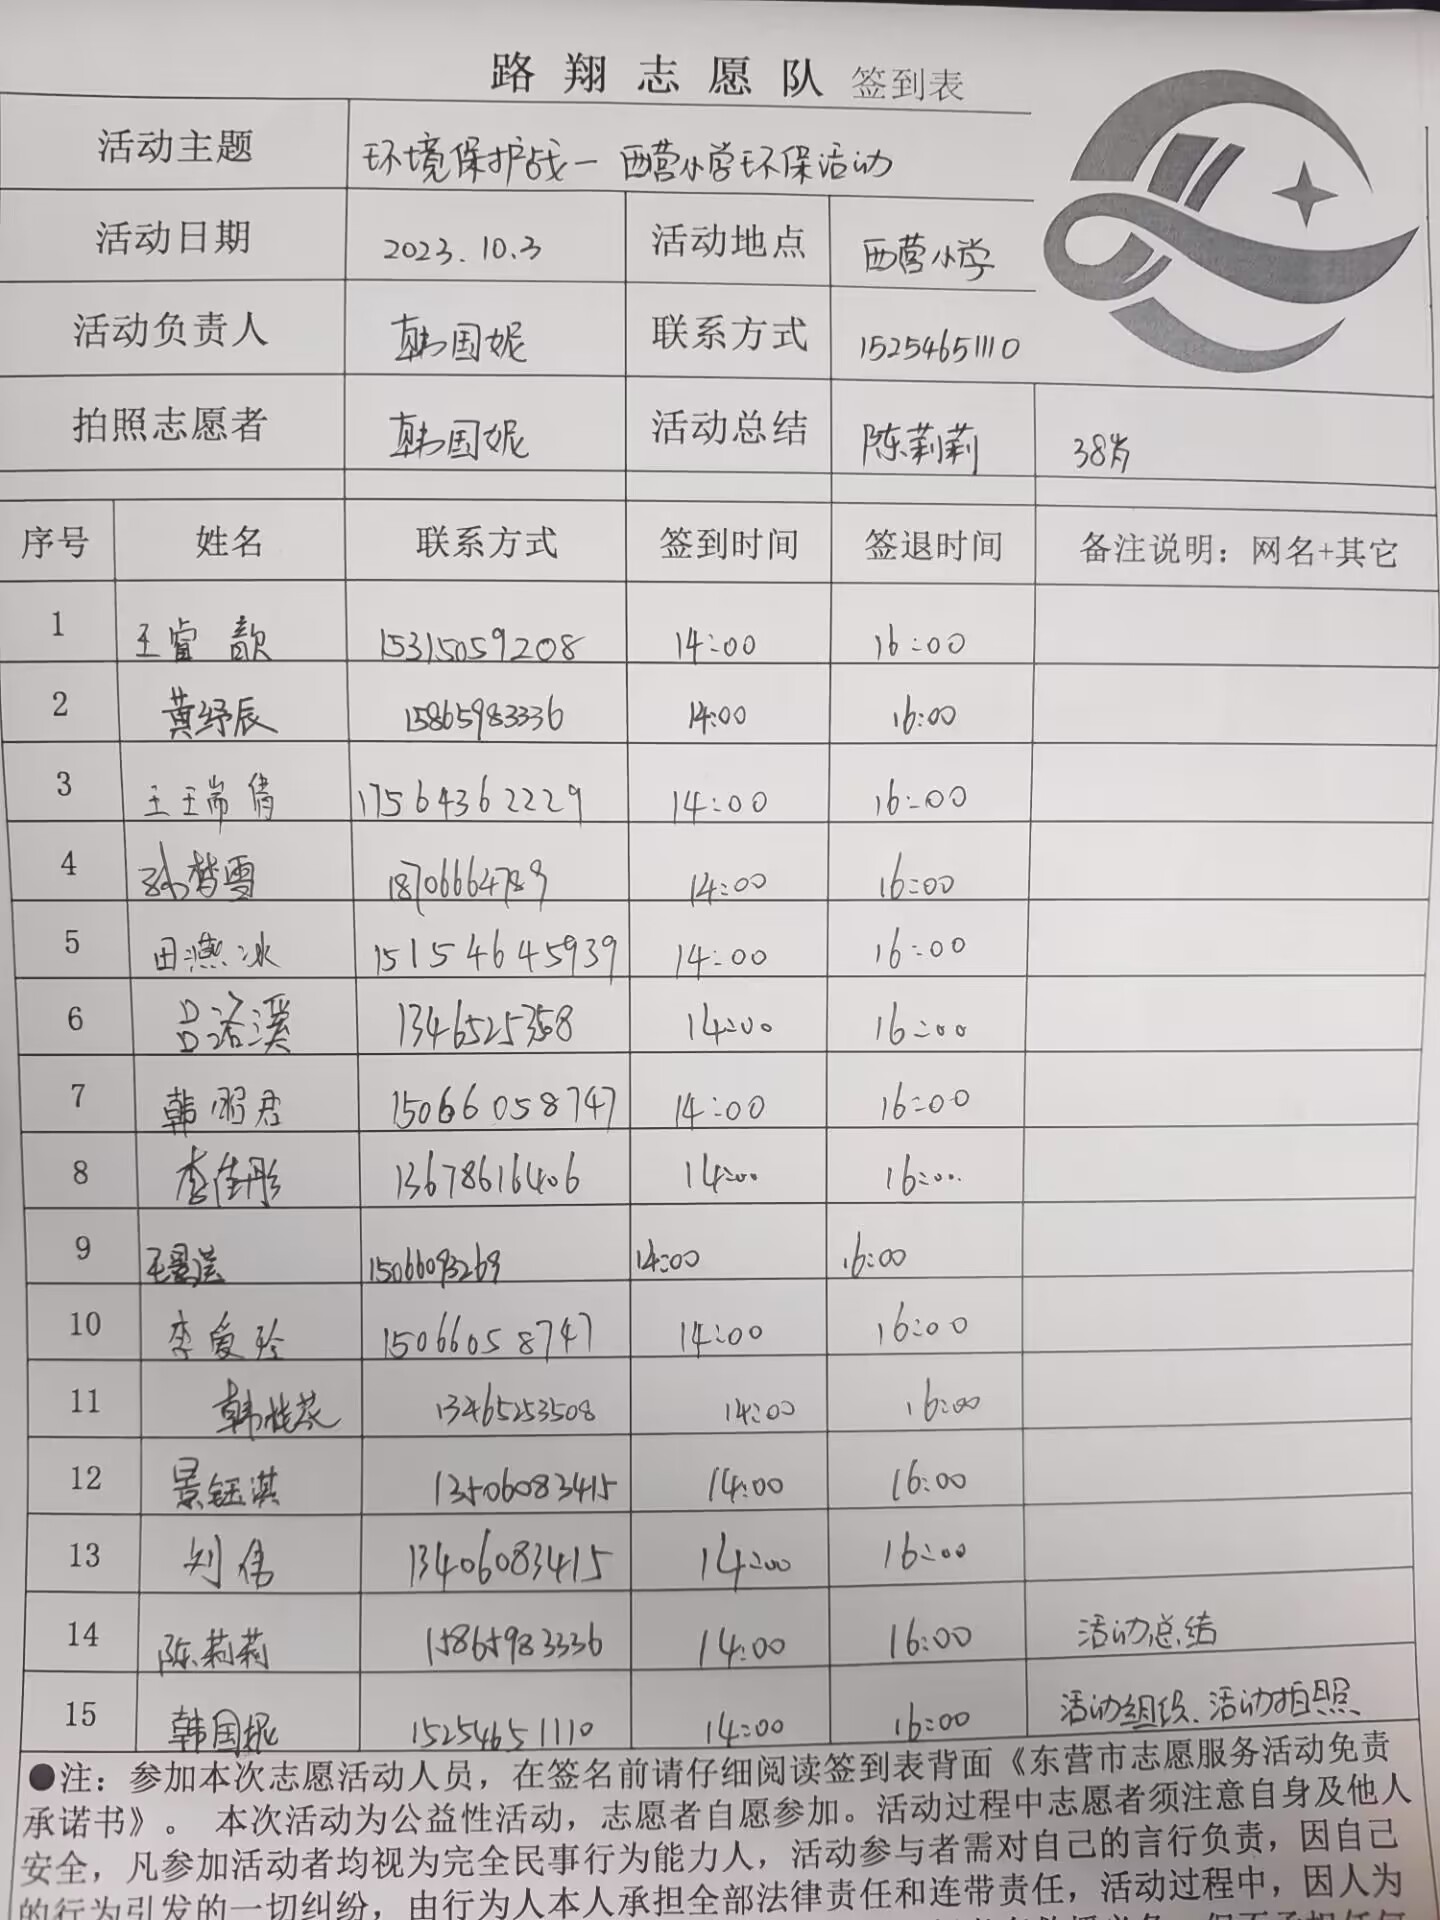 路翔志愿队 签到表
活动主题 环境保护战一 西营小学环保活动
活动日期 2023.10.3 活动地点 西营小学
活动负责人 韩国妮 联系方式 15254651110
拍照志愿者 韩国妮 活动总结 陈莉莉 38岁
序号 姓名 联系方式 签到时间 签退时间 备注说明：网名+其它
1 王睿歆 15315059208 14:00 16:00
2 黄纾辰 15865983336 14:00 16:00
3 王瑞倩 17564362229 14:00 16:00
4 孙梦雪 18706664789 14:00 16:00
5 田燕冰 15154645939 14:00 16:00
6 吕洛溪 1346525358 14:00 16:00
7 韩明君 15066058747 14:00 16:00
8 李佳彤 13678616406 14:00 16:00
9 15066093269 14:00 16:00
10 李爱玲 15066058747 14:00 16:00
11 韩 13465253508 14:00 16:00
12 景钰淇 13506083415 14:00 16:00
13 刘伟 13406083415 14:00 16:00
14 陈莉莉 15865983336 14:00 16:00 活动总结
15 韩国妮 15254651110 14:00 16:00 活动组织、活动拍照
●注：参加本次志愿活动人员，在签名前请仔细阅读签到表背面《东营市志愿服务活动免责
承诺书》。 本次活动为公益性活动，志愿者自愿参加。活动过程中志愿者须注意自身及他人
安全，凡参加活动者均视为完全民事行为能力人，活动参与者需对自己的言行负责，因自己
的行为引发的一切纠纷，由行为人本人承担全部法律责任和连带责任，活动过程中，因人为